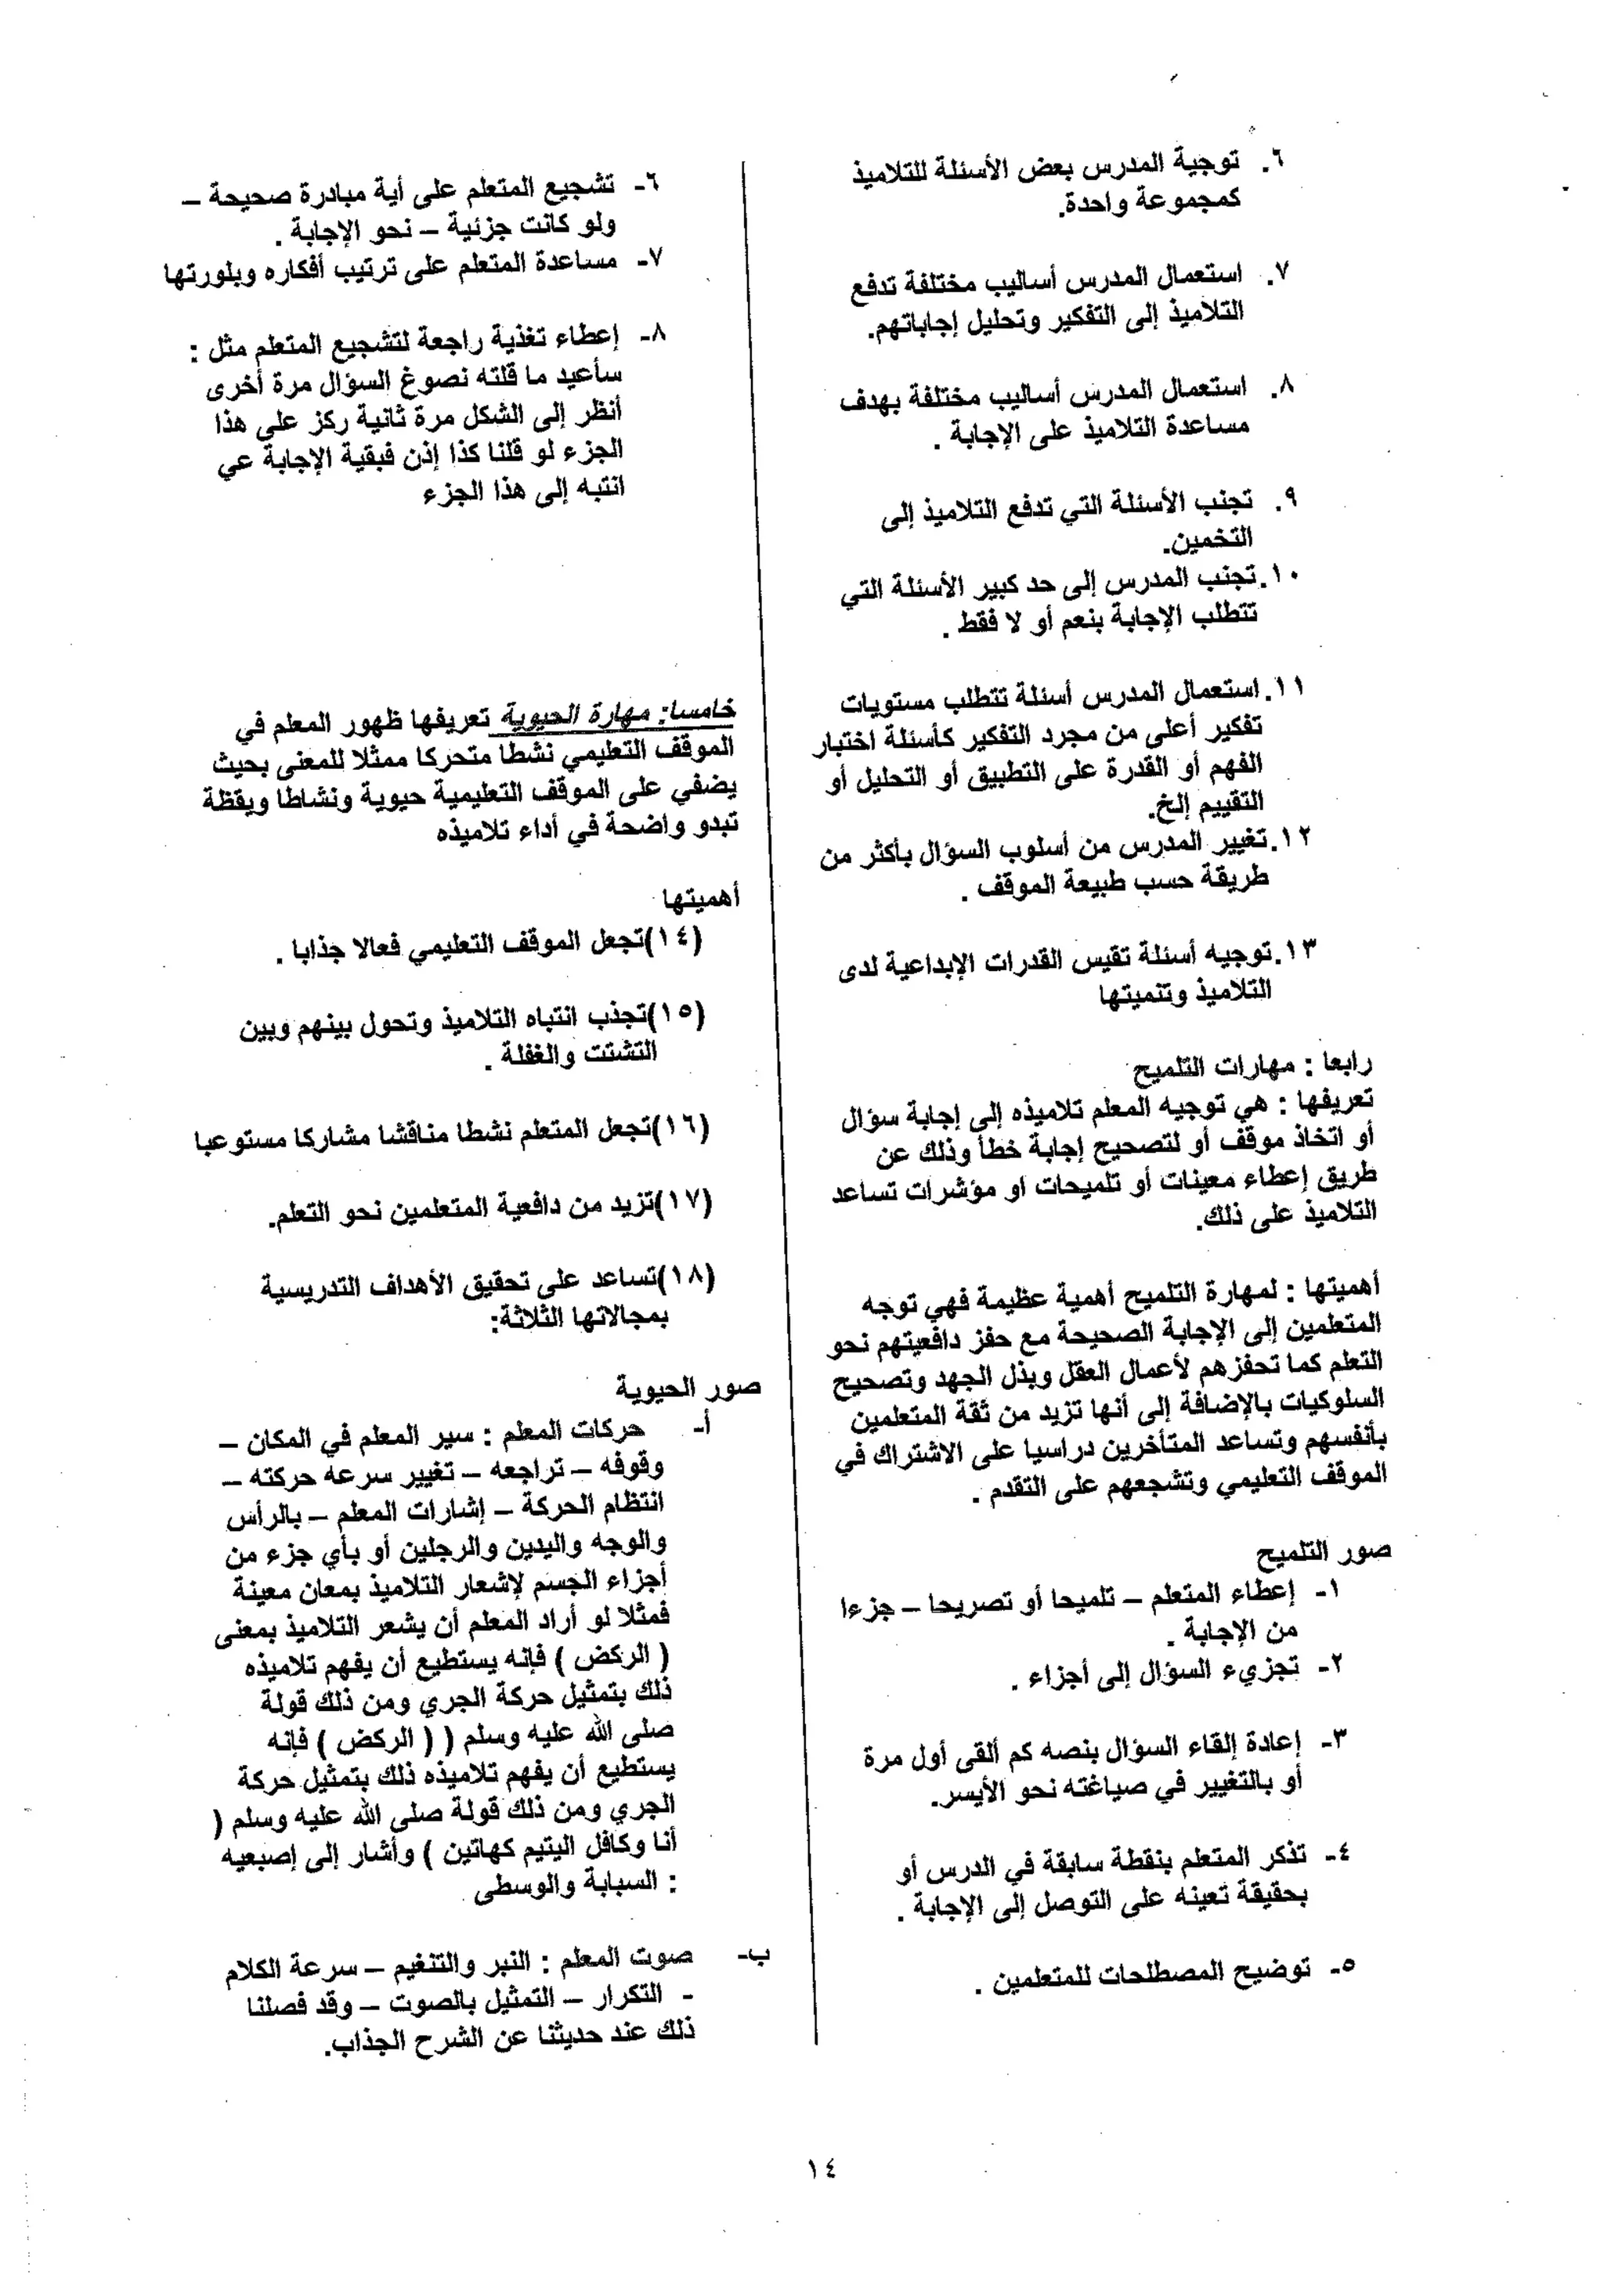 ٦. توجية المدرس بعض الأسئلة للتلاميذ
كمجموعة واحدة.
٧. استعمال المدرس أساليب مختلفة تدفع
التلاميذ إلى التفكير وتحليل إجاباتهم.
٨. استعمال المدرس أساليب مختلفة بهدف
مساعدة التلاميذ على الإجابة .
٩. تجنب الأسئلة التي تدفع التلاميذ إلى
التخمين.
١٠. تجنب المدرس إلى حد كبير الأسئلة التي
تتطلب الإجابة بنعم أو لا فقط .
١١. استعمال المدرس أسئلة تتطلب مستويات
تفكير أعلى من مجرد التفكير كأسئلة اختبار
الفهم أو القدرة على التطبيق أو التحليل أو
التقييم إلخ.
١٢. تغيير المدرس من أسلوب السؤال بأكثر من
طريقة حسب طبيعة الموقف .
١٣. توجيه أسئلة تقيس القدرات الإبداعية لدى
التلاميذ وتنميتها
رابعا : مهارات التلميح
تعريفها : هي توجيه المعلم تلاميذه إلى إجابة سؤال
أو اتخاذ موقف أو لتصحيح إجابة خطأ وذلك عن
طريق إعطاء معينات أو تلميحات او مؤشرات تساعد
التلاميذ على ذلك.
أهميتها : لمهارة التلميح أهمية عظيمة فهي توجه
المتعلمين إلى الإجابة الصحيحة مع حفز دافعيتهم نحو
التعلم كما تحفزهم لأعمال العقل وبذل الجهد وتصحيح
السلوكيات بالإضافة إلى أنها تزيد من ثقة المتعلمين
بأنفسهم وتساعد المتأخرين دراسيا على الاشتراك في
الموقف التعليمي وتشجعهم على التقدم .
صور التلميح
١- إعطاء المتعلم – تلميحا أو تصريحا – جزءا
من الإجابة .
٢- تجزيء السؤال إلى أجزاء .
٣- إعادة إلقاء السؤال بنصه كم ألقى أول مرة
أو بالتغيير في صياغته نحو الأيسر.
٤- تذكر المتعلم بنقطة سابقة في الدرس أو
بحقيقة تعينه على التوصل إلى الإجابة .
٥- توضيح المصطلحات للمتعلمين .
٦- تشجيع المتعلم على أية مبادرة صحيحة –
ولو كانت جزئية – نحو الإجابة .
٧- مساعدة المتعلم على ترتيب أفكاره وبلورتها
٨- إعطاء تغذية راجعة لتشجيع المتعلم مثل :
سأعيد ما قلته نصوغ السؤال مرة أخرى
أنظر إلى الشكل مرة ثانية ركز على هذا
الجزء لو قلنا كذا إذن فبقية الإجابة عي
انتبه إلى هذا الجزء
خامسا: مهارة الحيوية تعريفها ظهور المعلم في
الموقف التعليمي نشطا متحركا ممثلا للمعنى بحيث
يضفي على الموقف التعليمية حيوية ونشاطا ويقظة
تبدو واضحة في أداء تلاميذه
أهميتها
(١٤)تجعل الموقف التعليمي فعالا جذابا .
(١٥)تجذب انتباه التلاميذ وتحول بينهم وبين
التشتت والغفلة .
(١٦)تجعل المتعلم نشطا مناقشا مشاركا مستوعبا
(١٧)تزيد من دافعية المتعلمين نحو التعلم.
(١٨)تساعد على تحقيق الأهداف التدريسية
بمجالاتها الثلاثة:
صور الحيوية
أ- حركات المعلم : سير المعلم في المكان –
وقوفه – تراجعه – تغيير سرعه حركته –
انتظام الحركة – إشارات المعلم – بالرأس
والوجه واليدين والرجلين أو بأي جزء من
أجزاء الجسم لإشعار التلاميذ بمعان معينة
فمثلا لو أراد المعلم أن يشعر التلاميذ بمعنى
( الركض ) فإنه يستطيع أن يفهم تلاميذه
ذلك بتمثيل حركة الجري ومن ذلك قولة
صلى الله عليه وسلم ( ( الركض ) فإنه
يستطيع أن يفهم تلاميذه ذلك بتمثيل حركة
الجري ومن ذلك قولة صلى الله عليه وسلم (
أنا وكافل اليتيم كهاتين ) وأشار إلى إصبعيه
: السبابة والوسطى
ب- صوت المعلم : النبر والتنغيم – سرعة الكلام
- التكرار – التمثيل بالصوت – وقد فصلنا
ذلك عند حديثنا عن الشرح الجذاب.
١٤